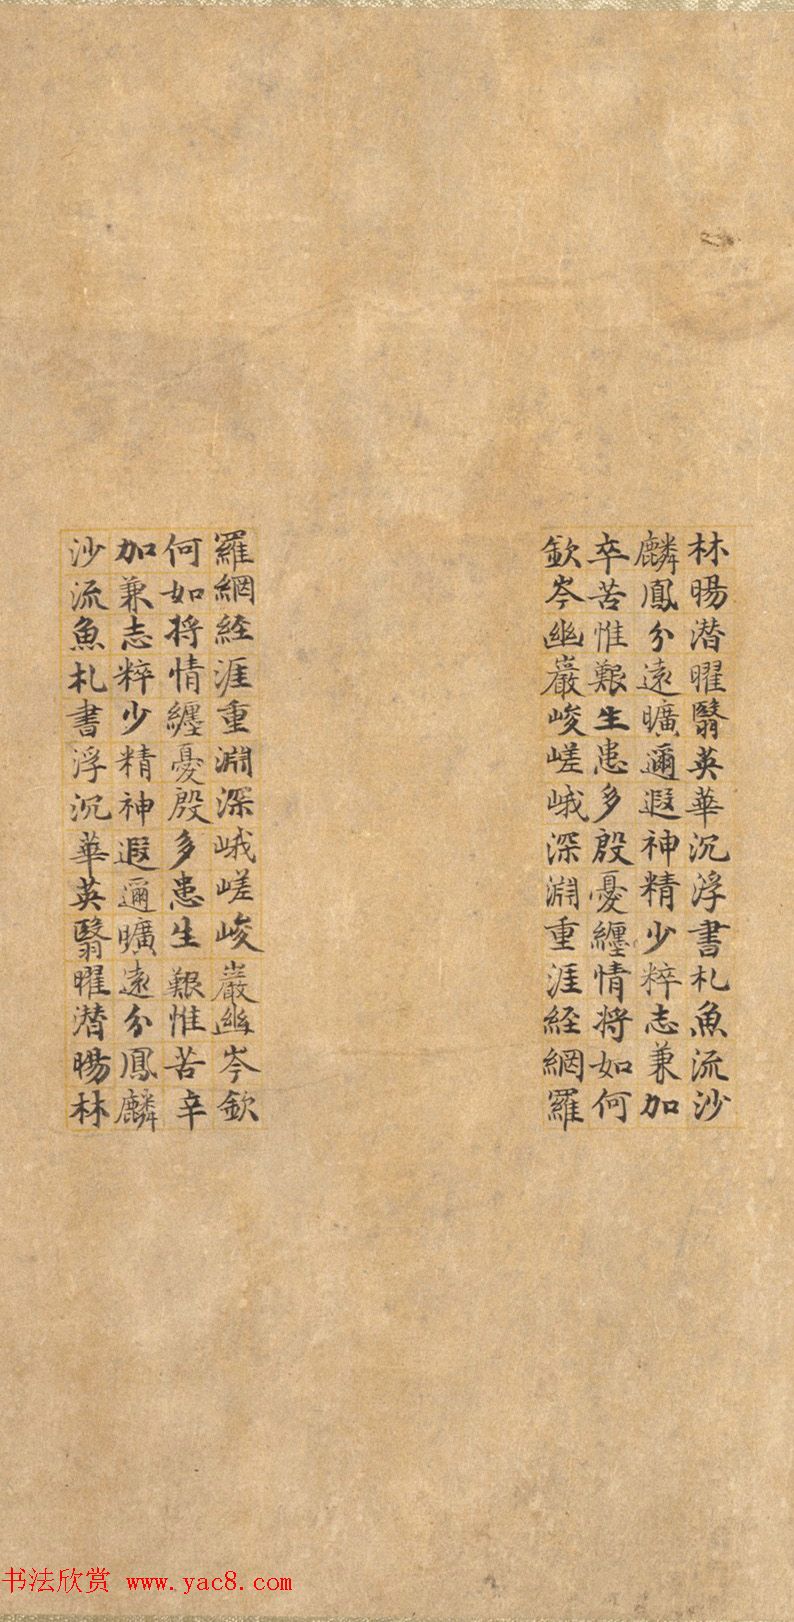 林暘潛曜翳英華沉浮書札魚流沙
麟鳳分遠曠邇遐神精少粹志兼加
卒苦惟艱生患多殷憂纏情將如何
欽岑幽巖峻嵯峨深淵重涯経網羅
羅網経涯重淵深峨嵯峻巖幽岑欽
何如將情纏憂殷多患生艱惟苦辛
加兼志粹少精神遐邇曠遠分鳳麟
沙流魚札書浮沉華英翳曜潛暘林
书法欣赏 www.yac8.com